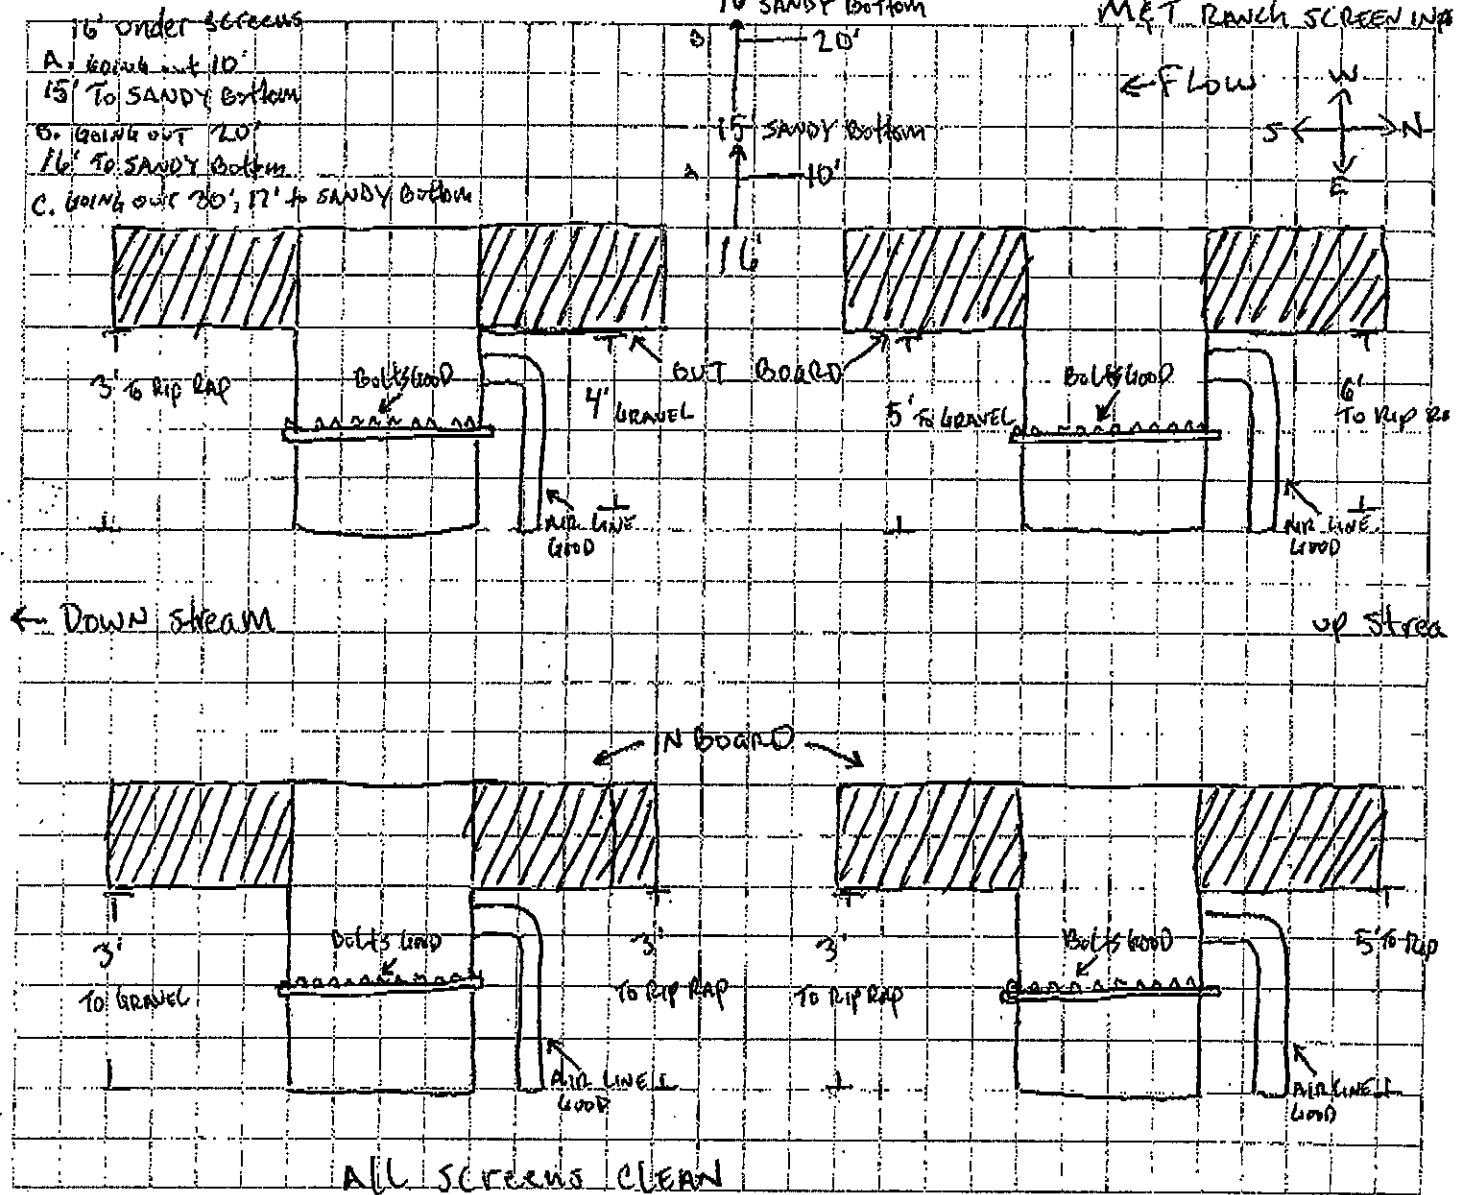 16' under screens
A. GOING out 10'
15' TO SANDY Bottom
B. GOING OUT 20'
16' TO SANDY Bottom
C. GOING OUT 30', 17' to SANDY Bottom
16' SANDY Bottom
B 20'
15' SANDY Bottom
A 10'
16'
M&T RANCH SCREEN
← FLOW
W
S N
E
3' To Rip RAP
Bolts GOOD
4' GRAVEL
AIR LINE
GOOD
OUT BOARD
5' To GRAVEL
Bolts GOOD
6'
To Rip
AIR LINE
GOOD
← DOWN stream
up
IN BOARD
3'
TO GRAVEL
Bolts GOOD
3'
TO Rip RAP
AIR LINE
GOOD
3'
TO Rip RAP
Bolts GOOD
5' To Rip
AIR LINE
GOOD
ALL Screens CLEAN